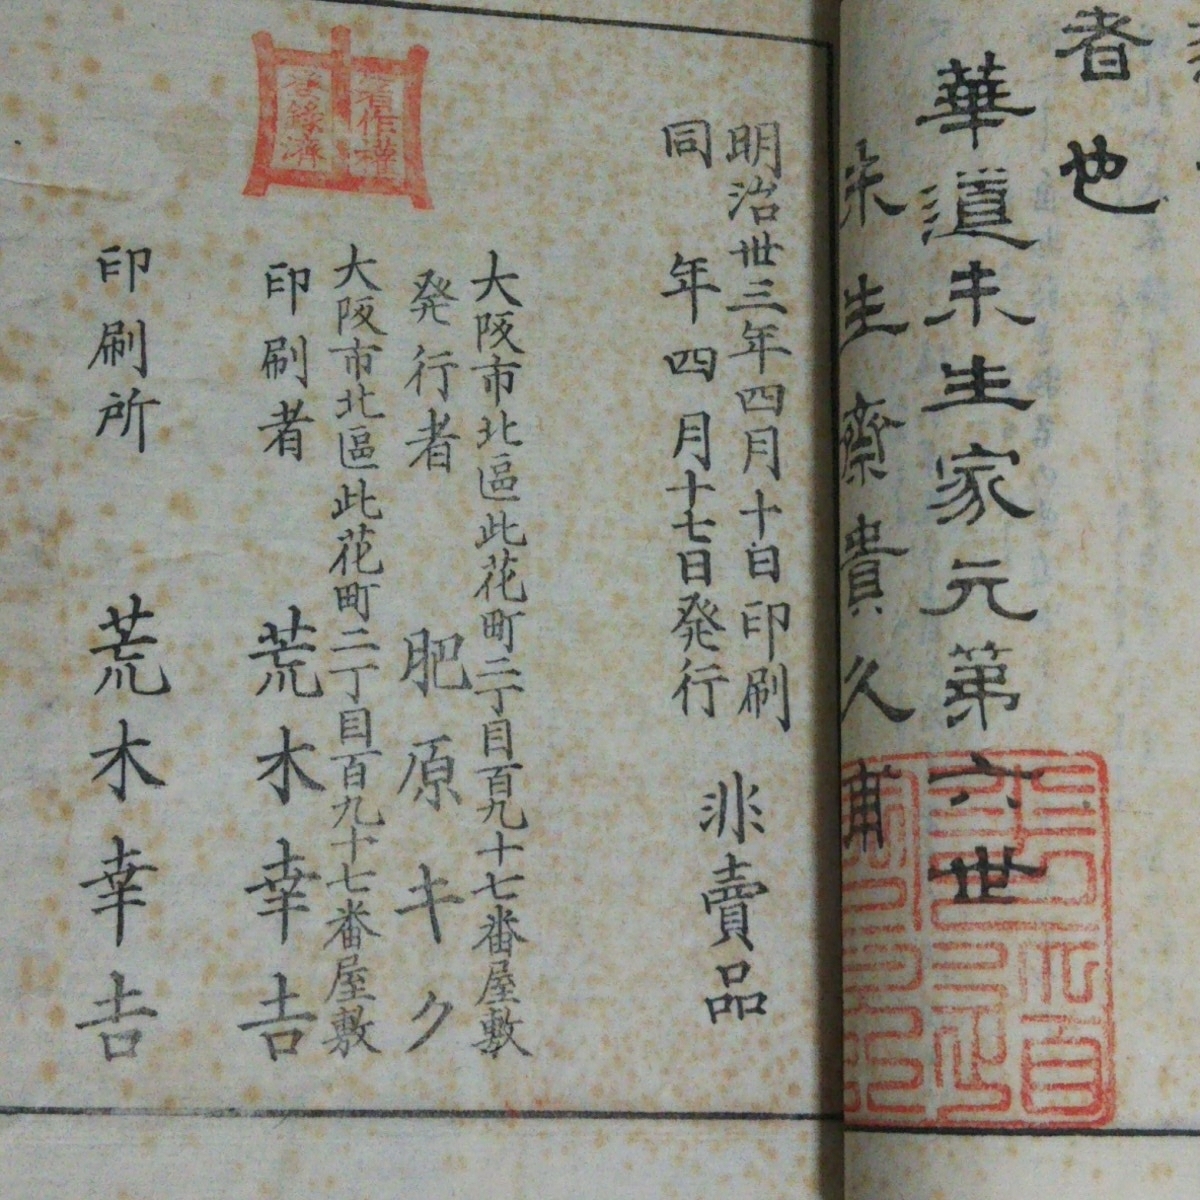 者也
華道未生家元第六世
未生齋貴久甫
明治丗三年四月十日印刷
同年四月十七日発行
非賣品
大阪市北區此花町二丁目百九十七番屋敷
発行者 肥原キク
大阪市北區此花町二丁目百九十七番屋敷
印刷者 荒木幸吉
印刷所 荒木幸吉
著作權
登録濟